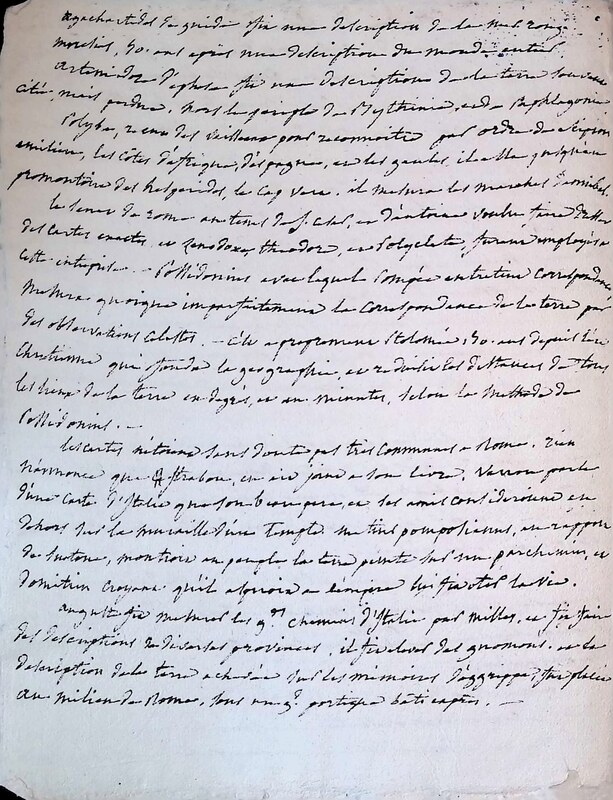 agatharchides de gnide fit une description de la mer rouge
40. ans après une description du monde entier
artemidore d'ephese fit une description de la terre souvent
citée, mais perdue, hors le periple de Bythinie, et de Paphlagonie
Polybe, reçu des vaisseaux pour reconnoitre par ordre de scipion
emilien, les côtes d'afrique, d'espagne, et les gaules il alla jusqu'au
promontoire des hesperides, le cap verd. il mesura les marches d'annibal.
le senat de rome au tems de J. cesar, et d'antoine voulut faire dresser
des cartes exactes, et zenodoxe, theodore, et Polyclete, furent employés à
cette entreprise. — Possidonius avec lequel Pompée entretint correspondance
mesura quoique imparfaitement la correspondance de la terre par
des observations celestes. — c'est a proprement Ptolomée, 50. ans depuis l'ère
chretienne qui fonda la geographie, et reduisit les distances de tous
les lieux de la terre en degrés, et en minutes, selon la methode de
Possidonius. —
les cartes n'étoient sans doute pas tres communes a Rome. rien
n'annonce que Strabon, en ait joint a son livre. Varron parle
d'une carte d'Italie que son beau pere, et ses amis consideroient en
dehors sur la muraille d'un temple. metius pomposianus, au rapport
de suetone, montroit au peuple la terre peinte sur un parchemin, et
domitien croyant qu'il aspiroit a l'empire lui fit oter la vie.
auguste fit mesurer les gds chemins d'Italie par milles, et fit faire
des descriptions de diverses provinces. il fit elever des gnomons. et la
description de la terre achevée sur les memoires d'aggrippa, fut placée
au milieu de Rome, sous un gd portique bati exprès. —